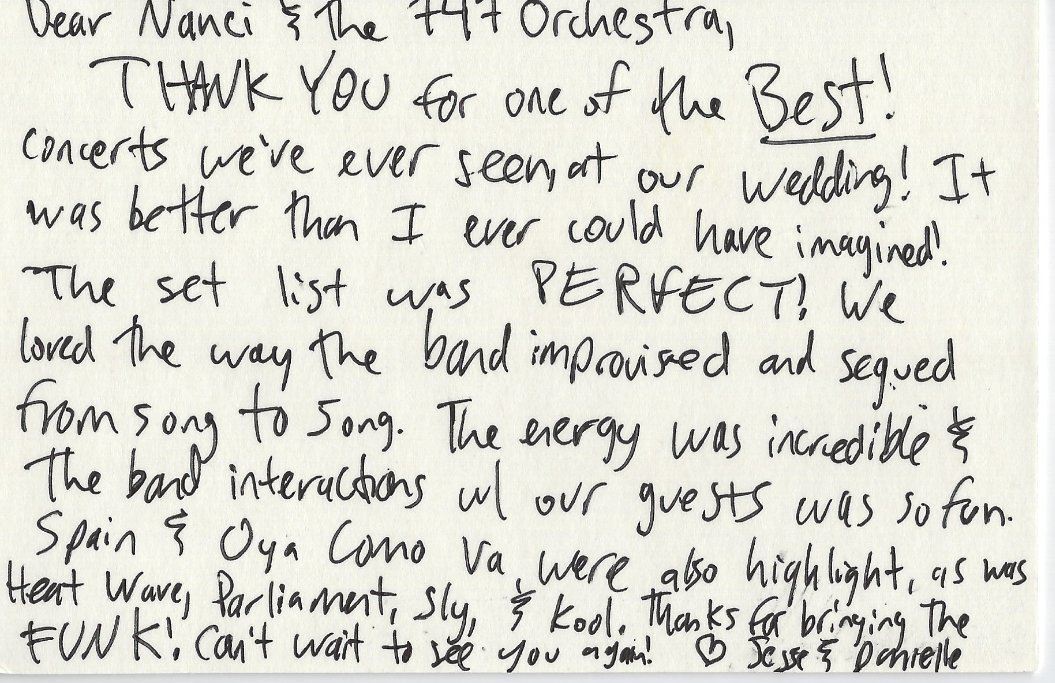 Dear Nanci & the 747 Orchestra,
THANK YOU for one of the Best!
concerts we've ever seen, at our wedding! It
was better than I ever could have imagined!
The set list was PERFECT! We
loved the way the band improvised and segued
from song to song. The energy was incredible &
the band interactions w/ our guests was so fun.
Spain & Oya Como Va, were also highlight, as was
Heat Wave, Parliament, Sly, & Kool. Thanks for bringing the
FUNK! Can't wait to see you again! ♡ Jesse & Danielle